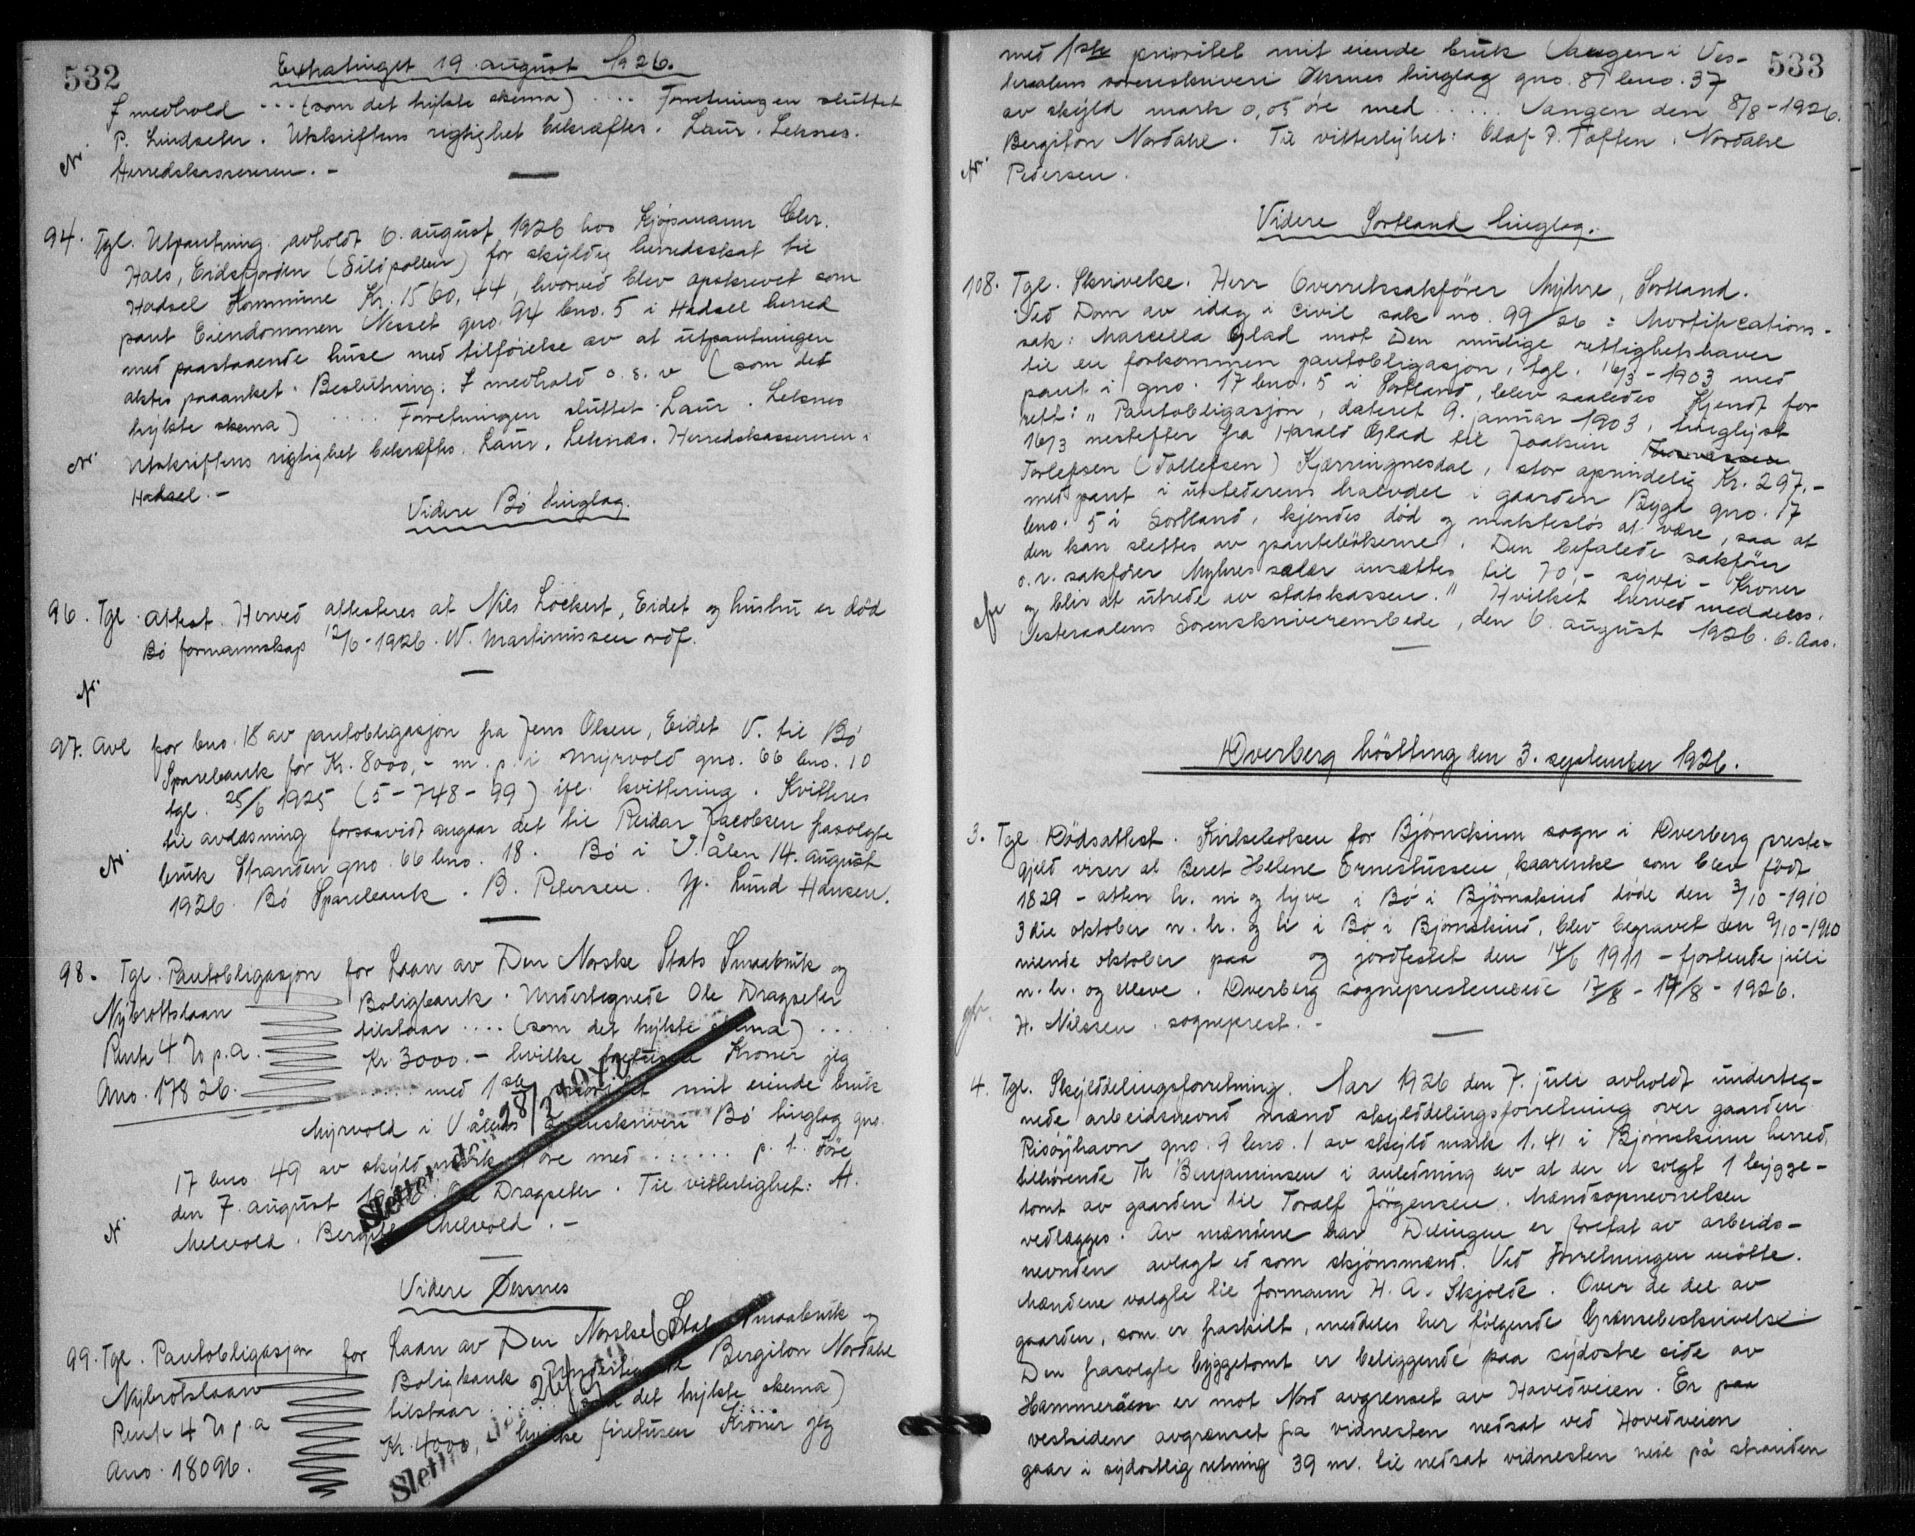 532
Extratinget 19. august 1926.
I medhold ... (som det hyllte skema) .... Forretningen sluttet
P. Lindseter. Utskriftens rigtighet bekræftes. Laur. Leknes.
Nr. Herredskassereren. -
94. Tgl. Utpantning avholdt 6. august 1926 hos Kjøpmann Chr.
Hals, Eidsfjorden (Sildpollen) for skyldig herredsskat til
Hadsel Kommune Kr. 1560,44, hvorved blev opskrevet som
pant Eiendommen Nesset gno. 94 bno. 5 i Hadsel herred
med paastaaende huse med tilføielse av at utpantningen
aktes paaanket. Beslutning: I medhold o. s. v (som det
hyllte skema) ... Forretningen sluttet. Laur. Leknes
Nr. Utskriftens rigtighet bekræftes. Laur. Leknes. Herredskassereren i
Hadsel. -
Videre Bø tinglag.
96. Tgl. attest. Herved attesteres at Nils Lockert, Eidet og hustru er død
Bø formannskap 12/6-1926. N. Martinussen ordf.
Nr.
97. Avl for bno. 18 av pantobligasjon fra Jens Olsen, Eidet V. til Bø
Sparebank for Kr. 8000,- m. p. i Myrvold gno. 66 bno. 10
tgl. 25/6 1925 (5-748-99) ifl. kvittering. Kvitteres
til avlæsning forsaavidt angaar det til Reidar Jacobsen frasolgte
Nr. bruk Stranden gno. 66 bno. 18. Bø i V.ålen 14. august
1926. Bø Sparebank. B. Petersen. Hj. Lund Hansen.
98. Tgl. Pantobligasjon for Laan av Den Norske Stats Smaabruk og
Nybrottslaan Boligbank. Undertegnede Ole Dragseter
tilstaar .... (som det hyllte skema) ......
Rente 4 % p.a. Kr. 3000.- hvilke tretusen Kroner jeg
Ano. 17826. ...... med 1ste prioritet mit eiende bruk
Myrvold i V.ålens sorenskriveri Bø tinglag gno.
17 bno. 49 av skyld mark øre med ...... p. t. Føre
den 7. august 1926. Ole Dragseter. Til vitterlighet: A.
Nr. Melvold. Bergitte Melvold. -
Slettet den 28/
Videre Øksnes
99. Tgl. Pantobligasjon for Laan av Den Norske Stats Smaabruk og
Nybrotslaan Boligbank. Undertegnede Bergiton Nordahl
tilstaar ...... (som det hyllte skema)
Rente 4 % p. a Kr. 4000,- hvilke firetusen Kroner jeg
Ano. 18096.
Slettet den 26/
533
med 1ste prioritet mit eiende bruk Vangen i Ves-
teraalens sorenskriveri Øksnes tinglag gno. 87 bno. 37
av skyld mark 0,05 øre med .... Vangen den 8/8-1926.
Bergiton Nordahl. Til vitterlighet: Olaf P. Toften. Nordahl
Nr. Pedersen.
Videre Sortland tinglag.
108. Tgl. Skrivelse. Herr Overretssakfører Myhre, Sortland.
Ved Dom av idag i civil sak no. 99/26: Mortifications-
sak: Marcella Glad mot Den mulige rettighetshaver
til en forkommen pantobligasjon, tgl. 16/3-1903 med
pant i gno. 17 bno. 5 i Sortland, blev saaledes Kjendt for
rett: „Pantobligasjon, dateret 9. januar 1903, tinglyst
16/3 nestefter fra Harald Glad til Joakim
Torlefsen (Tollefsen) Kjærringnesdal, stor oprindelig Kr. 297.-
med pant i utstederens halvdel i gaarden Bygd gno. 17
bno. 5 i Sortland, kjendes død og maktesløs at være, saa at
den kan slettes av pantebøkerne. Den befalede sakfører
o. r. sakfører Myhres salær ansættes til 70,- sytti - Kroner
Nr. og blir at utrede av statskassen." Hvilket herved meddeles.
Vesteraalens Sorenskriverembede, den 6. august 1926. O. Aas.
Dverberg høstting den 3. september 1926.
3. Tgl. Dødsattest. Kirkeboken for Bjørnskinn sogn i Dverberg preste-
gjeld viser at Beret Helene Ernestussen, kaarenke som blev født
1829 - atten h. ni og tyve i Bø i Bjørnskind døde den 3/10-1910
3die oktober n. h. og ti i Bø i Bjørnskind, blev begravet den 9/10-1910
niende oktober paa og jordfestet den 14/6 1911 - fjortende juli
n. h. og elleve. Dverberg sogneprestembede 17/8-17/8-1926.
H. Nilsen. sogneprest. -
4. Tgl. Skylddelingsforretning. Aar 1926 den 7. juli avholdt underteg-
nede arbeidsnevnd mænd skylddelingsforretning over gaarden
Risøyhavn gno. 9 bno. 1 av skyld mark 1.41 i Bjørnskinn herred,
tilhørende Th Benjaminsen i anledning av at der er solgt 1 bygge-
tomt av gaarden til Toralf Jørgensen. Mændsopnevnelsen
vedlægges. Av mændene har Delingen er foretat av arbeids-
nevnden avlagt ed som skjønsmænd. Ved forretningen møtte.
Mændene valgte til formann H. A. Skjolde. Over de del av
gaarden, som er fraskilt, meddeles her følgende Grænsebeskrivelse:
Den frasolgte byggetomt er beliggende paa sydostre side av
Hammeråen er mot Nord avgrenset av Hovedveien. Er paa
vestsiden avgrænset fra vidnesten nedsat ved Hovedveien
gaar i sydostlig retning 39 m. til nedsat vidnesten nede på stranden